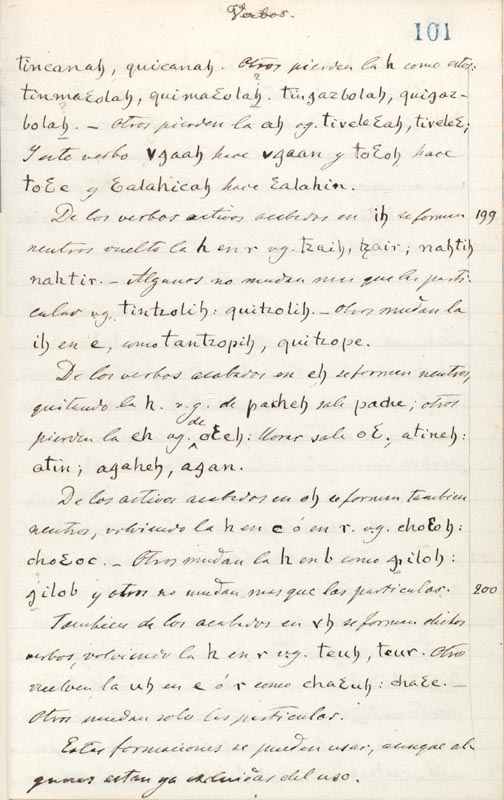 Verbos.
101
tincanah, quicanah. Otros pierden la h como estos:
tinmaƐolah, quimaƐolah. tingazbolah, quigaz-
bolah. — Otros pierden la ah vg. tiveleƐah, tiveleƐ;
Y este verbo vgaah hace vgaan y toƐoh hace
toƐe y Ɛalahicah hace Ɛalahin.
De los verbos activos acabados en ih se forman 199
neutros vuelto la h en r vg. tzaih, tzair; nahtih
nahtir. — Algunos no mudan mas que las parti-
culas vg. tintzolih: quitzolih. — Otros mudan la
ih en e, como tantzopih, quitzope.
De los verbos acabados en eh se forman neutros,
quitando la h. v.g. de pacheh sale pache; otros
pierden la eh vg. de oƐeh: llorar sale oƐ, atineh:
atin; agaheh, agan.
De los activos acabados en oh se forman tambien
neutros, volviendo la h en c ó en r. vg. choƐoh:
choƐoc. — Otros mudan la h en b como giloh:
gilob y otros no mudan mas que las particulas. 200
Tambien de los acabados en vh se forman dichos
verbos, volviendo la h en r vg. teuh, teur. Otros
vuelven la uh en e ó r como chaƐuh: chaƐe. —
Otros mudan solo las particulas.
Estas formaciones se pueden usar, aunque al-
gunas estan ya excluidas del uso.